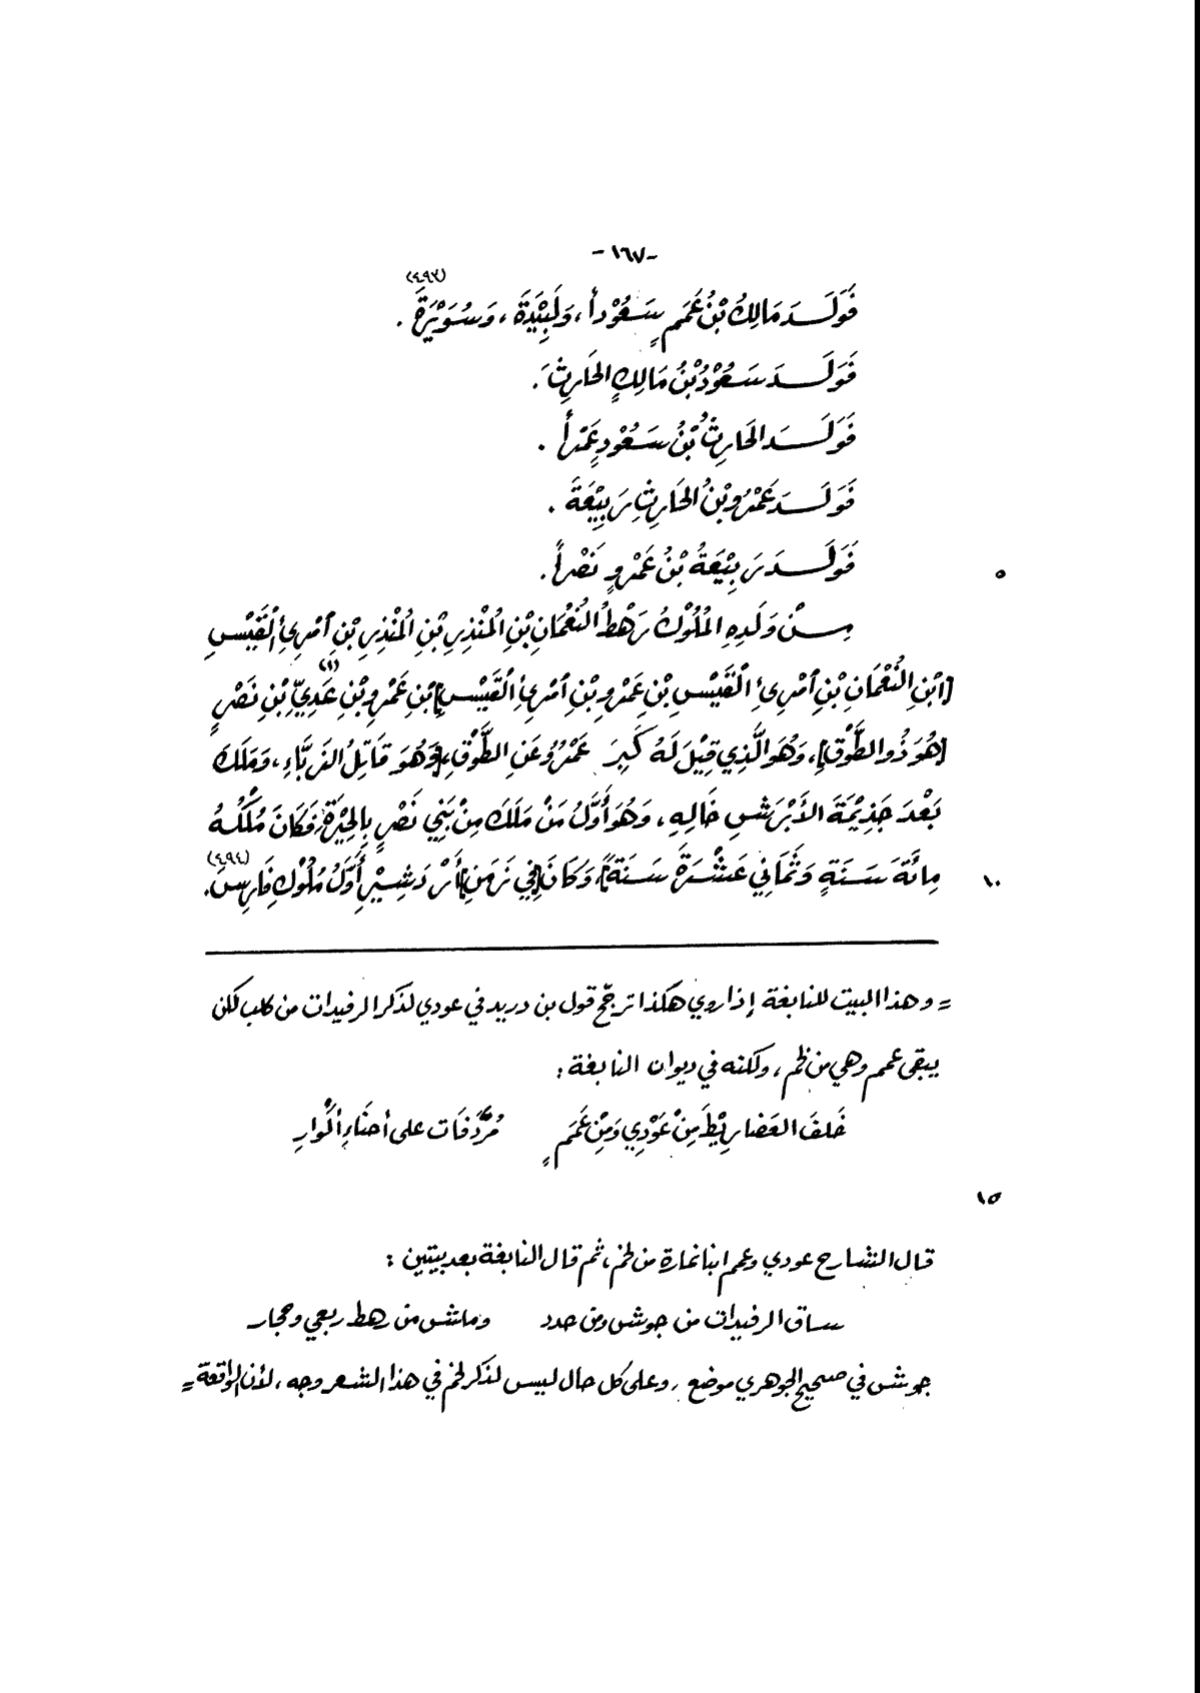 -١٦٧-
(٤٩٣)
فَوَلَـدَ مَالِكُ بْنُ عَمَمٍ سَعُوْداً، وَلَبِيْدَةَ، وَسُوَيْرَةَ .
فَوَلَـدَ سَعُوْدُ بْنُ مَالِكٍ الحَارِثَ .
فَوَلَـدَ الحَارِثُ بْنُ سَعُوْدٍ عَمْراً .
فَوَلَـدَ عَمْرُو بْنُ الحَارِثِ رَبِيْعَةَ .
فَوَلَـدَ رَبِيْعَةُ بْنُ عَمْرٍو نَصْراً .
٥
مِـنْ وَلَدِهِ المُلُوْكُ رَهْطُ النُعْمَانِ بْنِ المُنْذِرِ بْنِ المُنْذِرِ بْنِ اْمْرِئِ اْلقَيْسِ
[ابْنِ النُعْمَانِ بْنِ اْمْرِئِ اْلقَيْسِ بْنِ عَمْرِو بْنِ اْمْرِئِ اْلقَيْسِ] بْنِ عَمْرِو بْنِ عَدِيِّ(١) بْنِ نَصْرٍ
[هُوَ ذُو الطَّوْقِ]، وَهُوَ الَّذِي قِيْلَ لَهُ كَبِرَ عَمْرُوٌ عَنِ الطَّوْقِ، [وَهُوَ قَاتِلُ الزَبَّاءِ، وَمَلَكَ
بَعْدَ جَذِيْمَةَ الأَبْرَشِ خَالِهِ، وَهُوَ أَوَّلُ مَنْ مَلَكَ مِنْ بَنِي نَصْرٍ بِالحِيْرَةِ، فَكَانَ مُلْكُهُ
مِائَةَ سَنَةٍ وَثَمَانِي عَشْرَةَ سَنَةً]، وَكَانَ [فِي زَمَنِ] أَرْدَشِيْرِ أَوَّلُ مُلُوْكِ فَارِسَ .(٤٩٤)
١٠
= وهذا البيت للنابغة إذا روي هكذا ترجّح قول بن دريد في عودي لذكر الرفيدات من كلب لكن
يبقى عمم وهي من لخم، ولكنه في ديوان النابغة :
خَلفَ العَضاريْطَ مِنْ عَوْدِي وَمِنْ عَمَمٍ مُرَّدَفَات على أحنَاءِ أكْوارِ
١٥
قال الشارح عودي وعمم ابنا نمارة من لخم، ثم قال النابغة بعد بيتين :
ساق الرفيدات من جوش ومن حدد وماش من رهط ربعي وحجار
جوش في صحيح الجوهري موضع، وعلى كل حال ليس لذكر لخم في هذا الشعر وجه، لأن الواقعة =